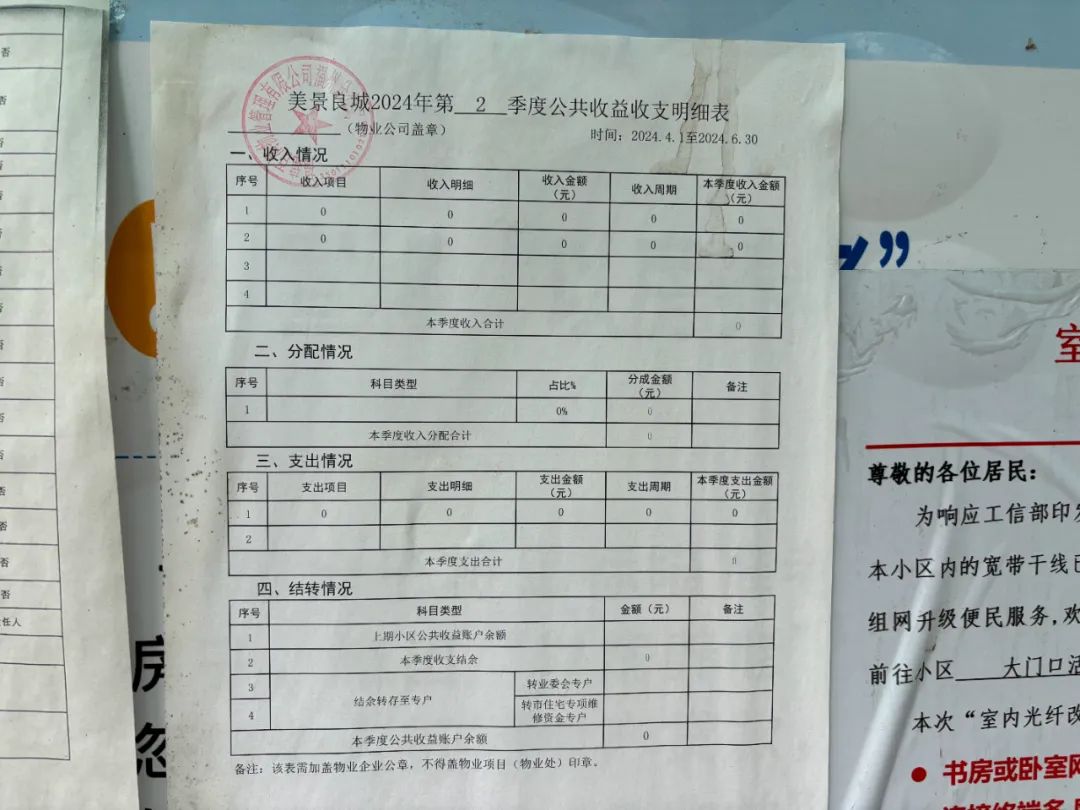 美景良城2024年第 2 季度公共收益收支明细表
（物业公司盖章）
时间：2024.4.1至2024.6.30
一、收入情况
序号 收入项目 收入明细 收入金额（元） 收入周期 本季度收入金额（元）
1 0 0 0 0 0
2 0 0 0 0 0
3
4
本季度收入合计 0
二、分配情况
序号 科目类型 占比% 分成金额（元） 备注
1 0% 0
本季度收入分配合计 0
三、支出情况
序号 支出项目 支出明细 支出金额（元） 支出周期 本季度支出金额（元）
1 0 0 0 0 0
2
本季度支出合计 0
四、结转情况
序号 科目类型 金额（元） 备注
1 上期小区公共收益账户余额
2 本季度收支结余 0
3 结余转存至专户 转业委会专户
4 转市住宅专项维修资金专户
本季度公共收益账户余额 0
备注：该表需加盖物业企业公章，不得盖物业项目（物业处）印章。
室
尊敬的各位居民：
为响应工信部印发
本小区内的宽带干线已
组网升级便民服务，欢
前往小区 大门口活
本次“室内光纤改
● 书房或卧室网
房
忽